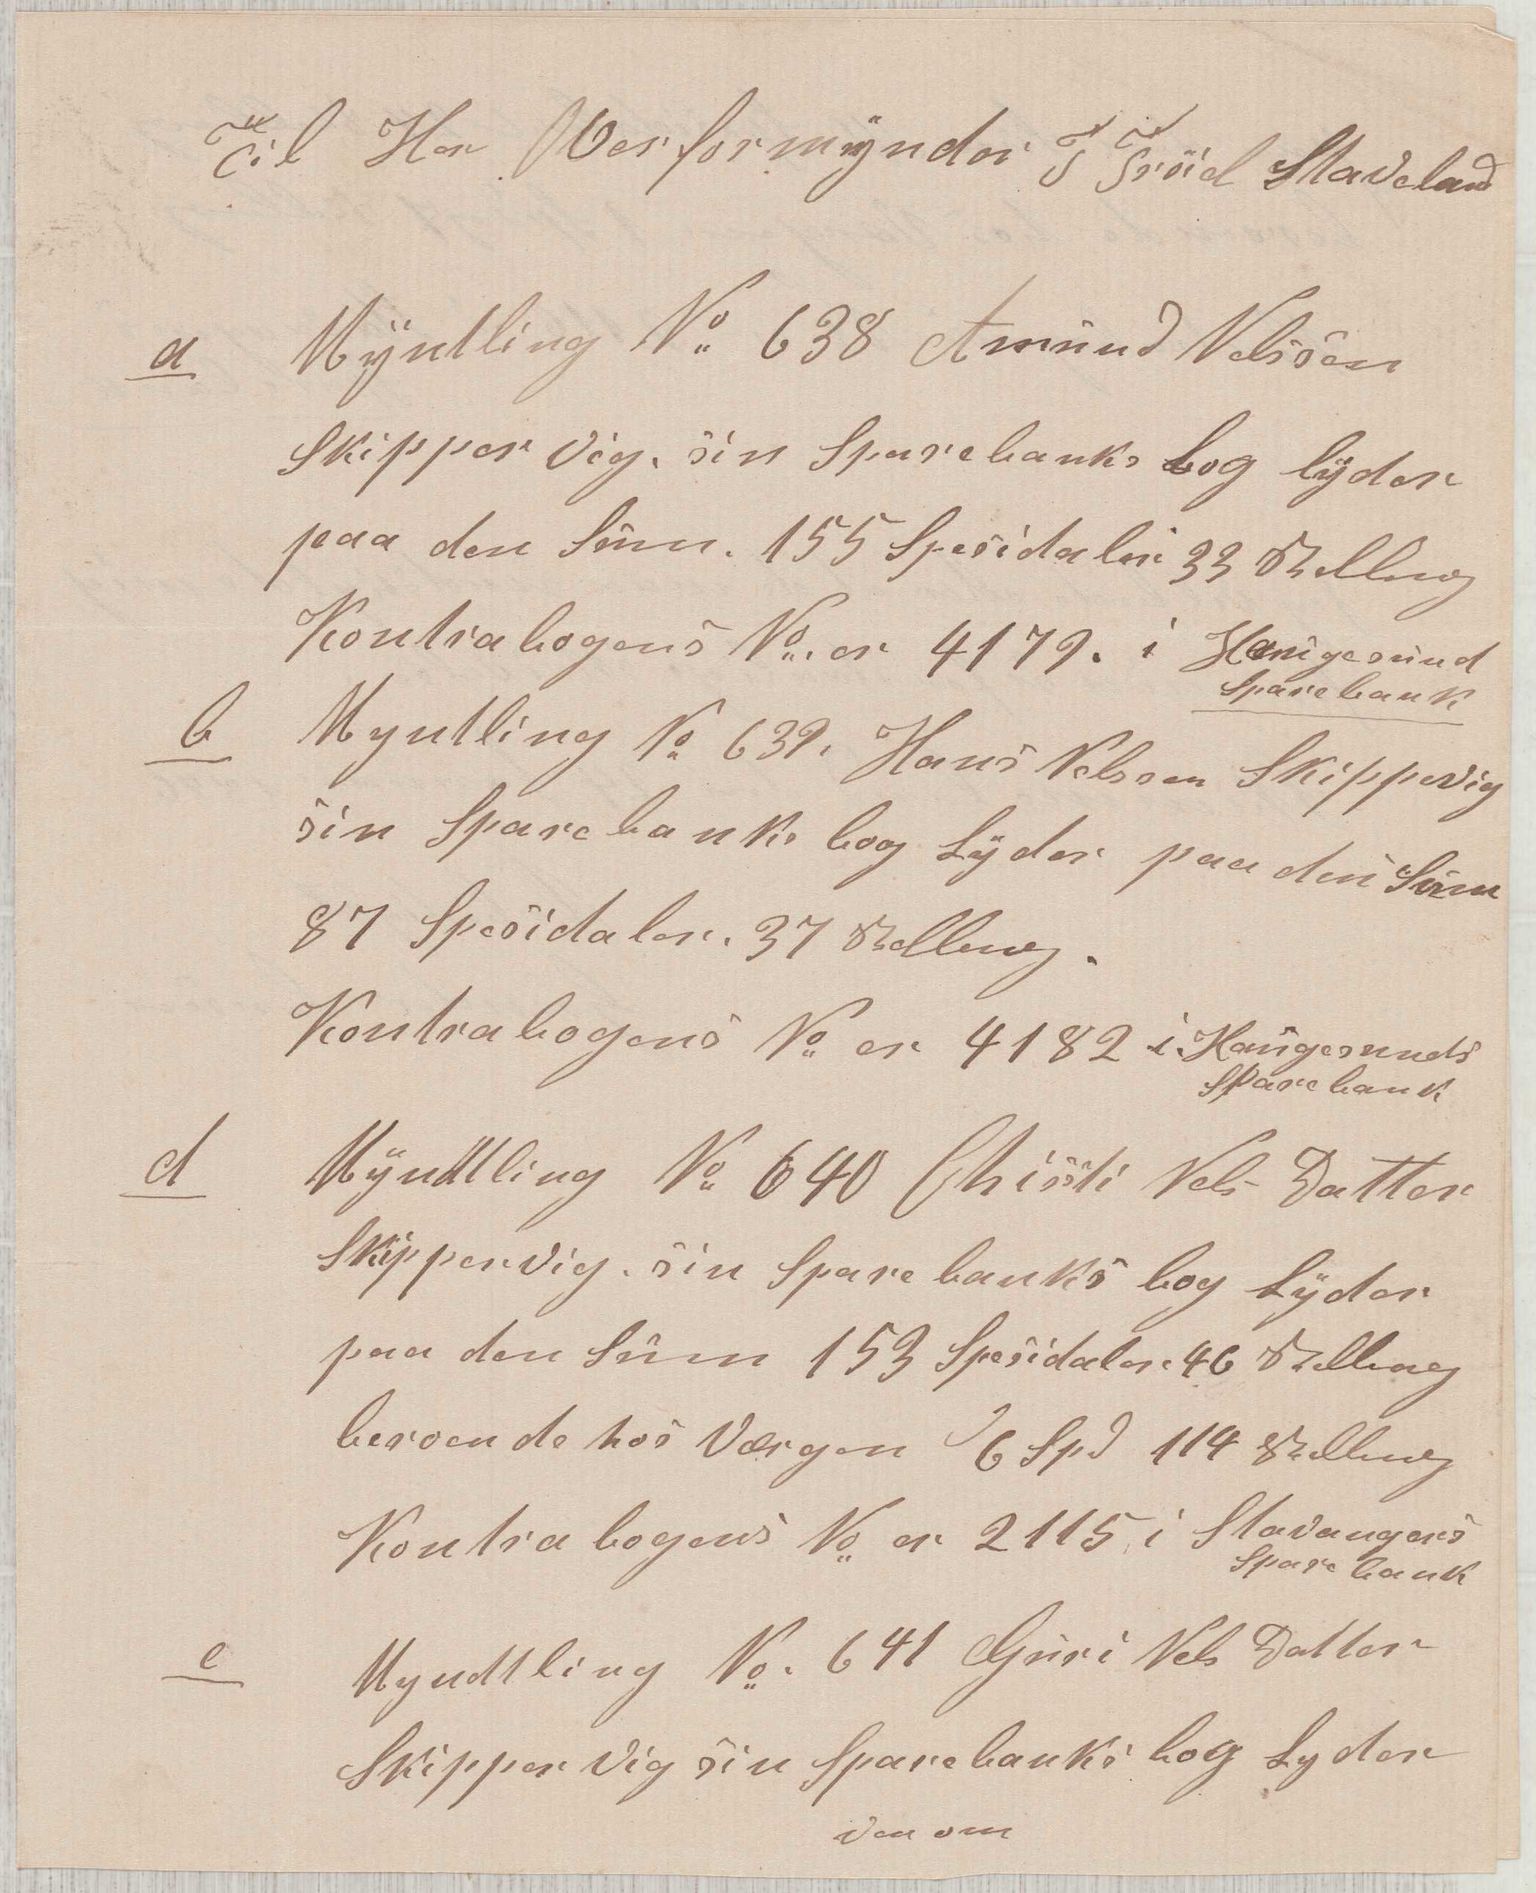 Til Her Overformynder T Svöid Staveland
a Myntling No 638 Amund Nelssen
Skipper vig. sin Sparebanks bog lyder
paa den Sum. 155 Spesidaler 33 Skelling
Kontrabogens No. er 4179. i Haugesund
Sparebank
b Myntling No 639. Hans Nelssen Skippevig
sin Sparebanks bog Lyder paa den Sum
87 Spesidaler. 37 Skelling.
Kontrabogens No er 4182 i Haugesunds
Sparebank
d Myndtling No 640 Christi Nels Datter
Skippervig. sin Sparebanks bog Lyder
paa den Sum 153 Spesidaler. 46 Skelling
beroende hos Værgen 6 Spd 114 Skelling
Kontrabogens No er 2115 i Stavangers
Sparebank
e Myndtling No. 641 Guri Nels Datter
Skipper vig sin Sparebanks bog Lyder
ven om